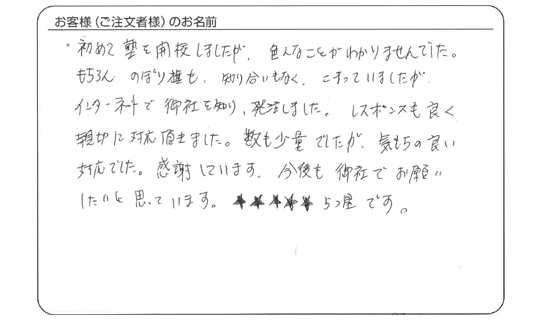 お客様（ご注文者様）のお名前
・初めて塾を開校しましたが、色んなことがわかりませんでした。
もちろん のぼり旗も、知り合いもなく、こまっていましたが
インターネットで御社を知り、発注しました。レスポンスも良く
親切に対応頂きました。数も少量でしたが、気もちの良い
対応でした。感謝しています。今後も御社でお願い
したいと思っています。★★★★★ 5つ星です。